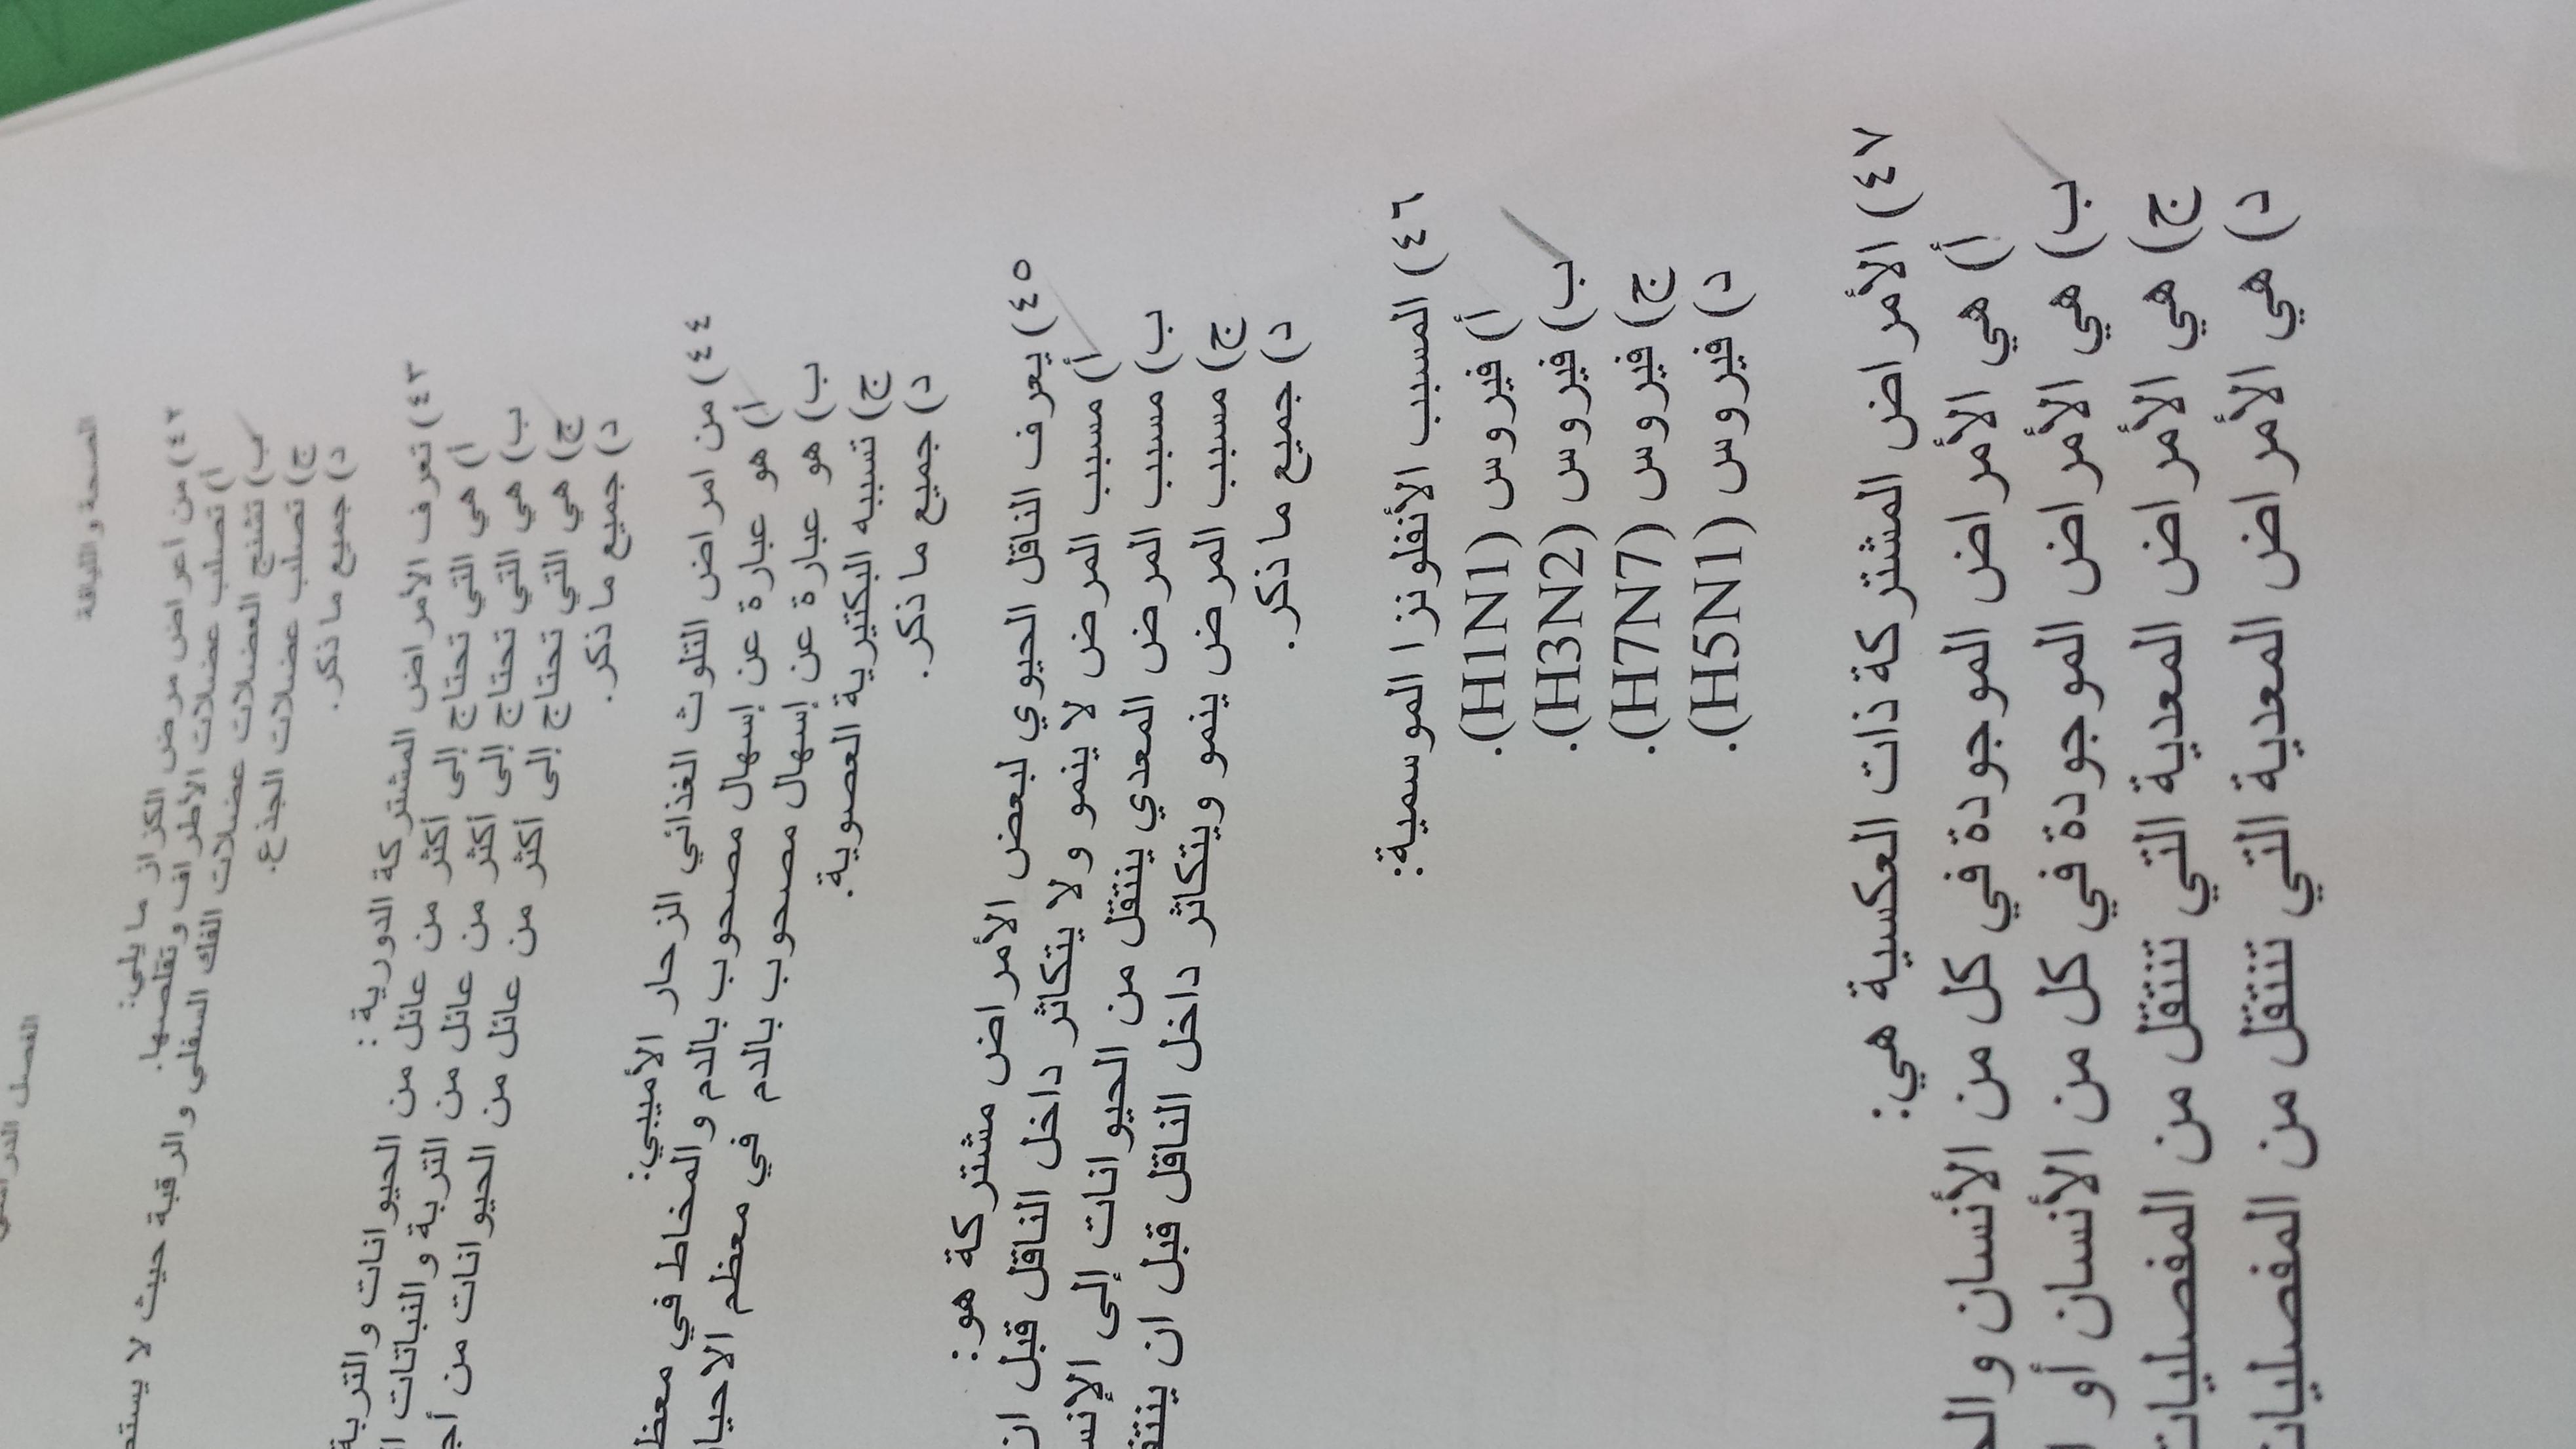 الفصل الدراسي
الصحة واللياقة
٤٢) من اعراض مرض الكزاز ما يلي:
أ) تصلب عضلات الأطراف وتقلصها.
ب) تشنج العضلات عضلات الفك السفلي والرقبة حيث لا
ج) تصلب عضلات الجذع.
د) جميع ما ذكر.
٤٣) تعرف الأمراض المشتركة الدورية :
أ) هي التي تحتاج إلى أكثر من عائل من الحيوانات والتربة
ب) هي التي تحتاج إلى أكثر من عائل من التربة والنباتات
ج) هي التي تحتاج إلى أكثر من عائل من الحيوانات من
د) جميع ما ذكر.
٤٤) من امراض التلوث الغذائي الزحار الأميبي:
أ) هو عبارة عن إسهال مصحوب بالدم والمخاط في
ب) هو عبارة عن إسهال مصحوب بالدم في معظم
ج) تسببه البكتيرية العصوية.
د) جميع ما ذكر.
٤٥) يعرف الناقل الحيوي لبعض الأمراض مشتركة هو:
أ) مسبب المرض لا ينمو ولا يتكاثر داخل الناقل قبل ان
ب) مسبب المرض المعدي ينتقل من الحيوانات إلى
ج) مسبب المرض ينمو ويتكاثر داخل الناقل قبل ان
د) جميع ما ذكر.
٤٦) المسبب الأنفلونزا الموسمية:
أ) فيروس (H1N1).
ب) فيروس (H3N2).
ج) فيروس (H7N7).
د) فيروس (H5N1).
٤٧) الأمراض المشتركة ذات العكسية هي:
أ) هي الأمراض الموجودة في كل من الأنسان
ب) هي الأمراض الموجودة في كل من الأنسان أو
ج) هي الأمراض المعدية التي تنتقل من المفصليات
د) هي الأمراض المعدية التي تنتقل من المفصليات